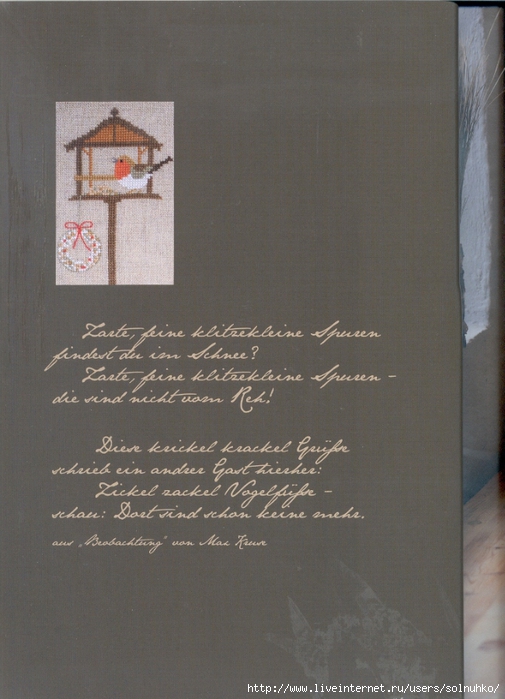 Zarte, feine klitzekleine Spuren
findest du im Schnee?
Zarte, feine klitzekleine Spuren –
die sind nicht vom Reh!
Diese krickel krackel Grüße
schrieb ein andrer Gast hierher:
Zickel zackel Vogelfüße –
schau: Dort sind schon keine mehr.
aus „Beobachtung" von Max Kruse
http://www.liveinternet.ru/users/solnuhko/